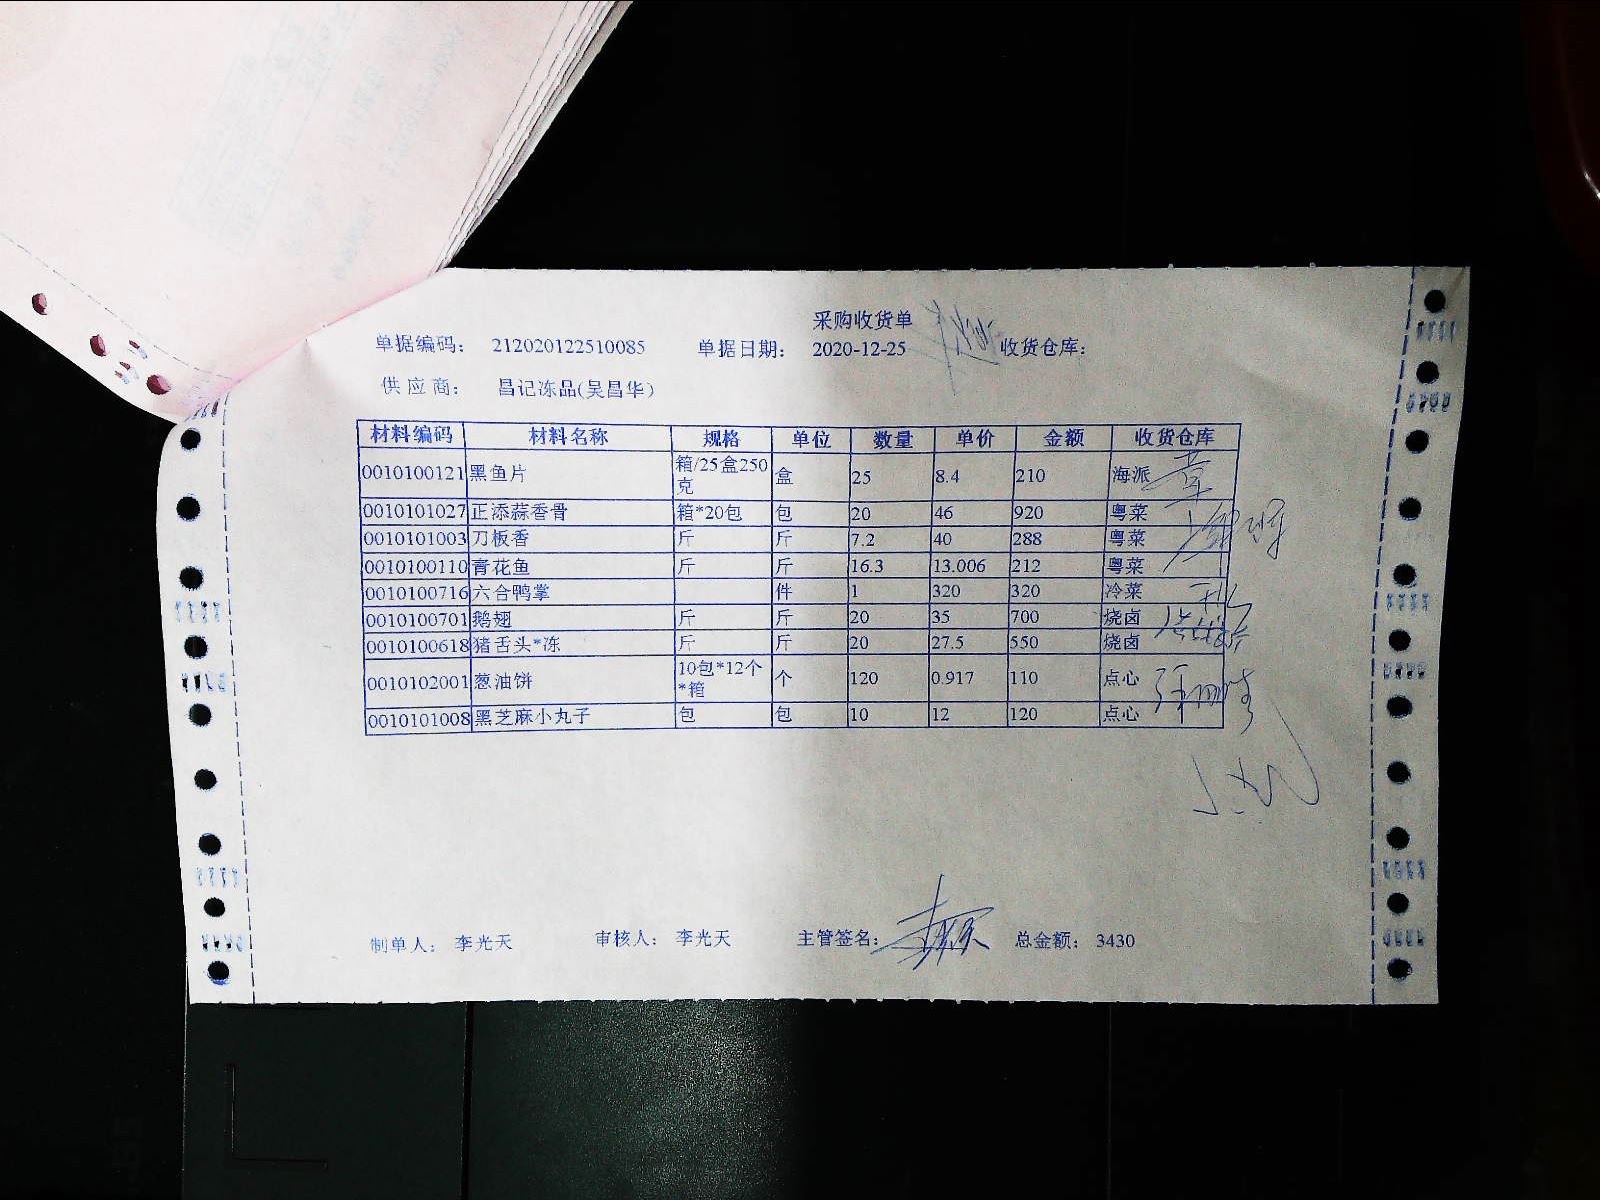 采购收货单
单据编码： 212020122510085 单据日期： 2020-12-25 收货仓库：
供应商： 昌记冻品(吴昌华)
材料编码 材料名称 规格 单位 数量 单价 金额 收货仓库
0010100121 黑鱼片 箱/25盒250克 盒 25 8.4 210 海派
0010101027 正添蒜香骨 箱*20包 包 20 46 920 粤菜
0010101003 刀板香 斤 斤 7.2 40 288 粤菜
0010100110 青花鱼 斤 斤 16.3 13.006 212 粤菜
0010100716 六合鸭掌 件 1 320 320 冷菜
0010100701 鹅翅 斤 斤 20 35 700 烧卤
0010100618 猪舌头*冻 斤 斤 20 27.5 550 烧卤
0010102001 葱油饼 10包*12个*箱 个 120 0.917 110 点心
0010101008 黑芝麻小丸子 包 包 10 12 120 点心
制单人： 李光天 审核人： 李光天 主管签名： 总金额： 3430